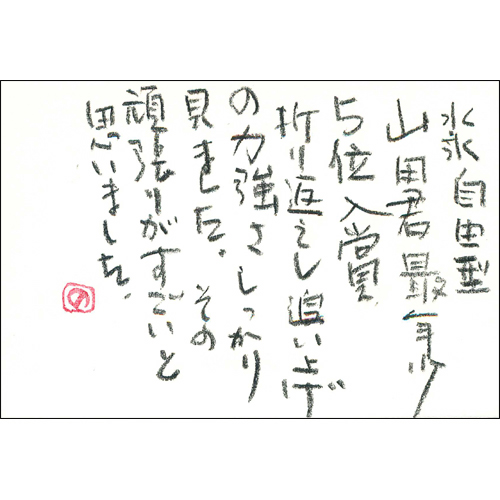 泳自由型
山田君最年少
5位入賞
折り返えし追い上げ
の力強さしっかり
見ました。その
頑張りがすごいと
思いました。
の